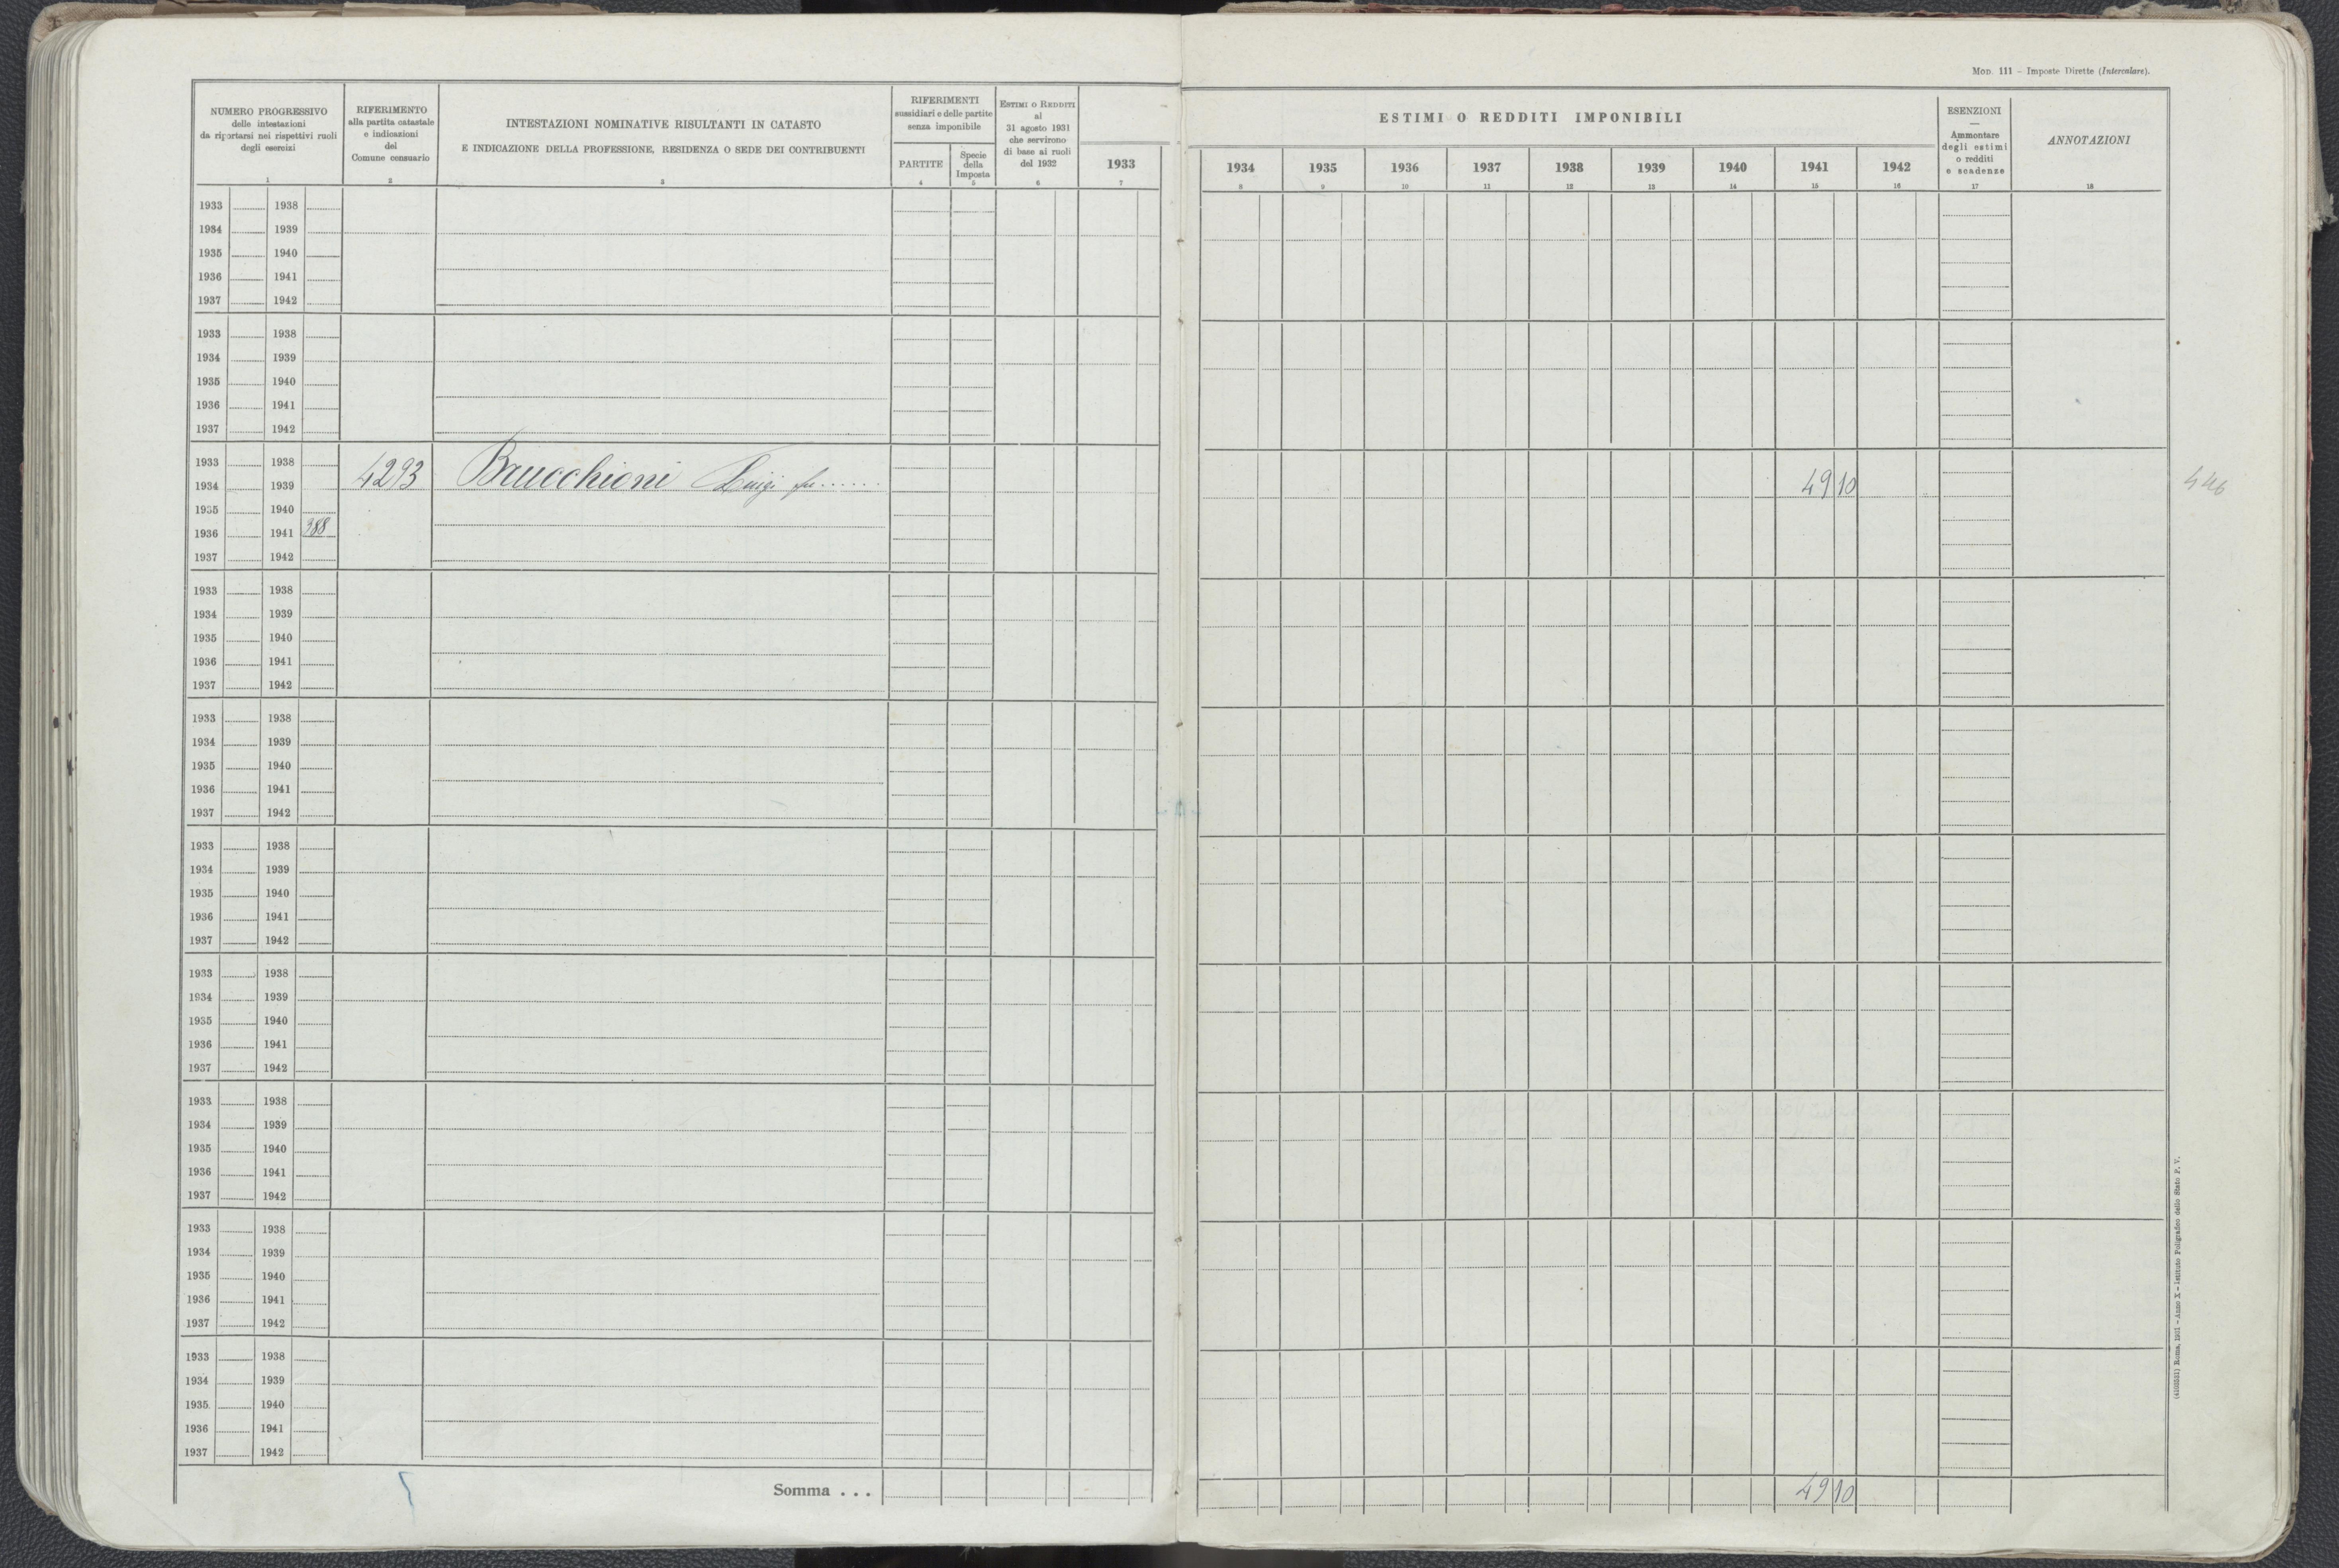 Mod. 111 – Imposte Dirette (Intercalare).
NUMERO PROGRESSIVO
delle intestazioni
da riportarsi nei rispettivi ruoli
degli esercizi
1
RIFERIMENTO
alla partita catastale
e indicazioni
del
Comune censuario
2
INTESTAZIONI NOMINATIVE RISULTANTI IN CATASTO
E INDICAZIONE DELLA PROFESSIONE, RESIDENZA O SEDE DEI CONTRIBUENTI
3
RIFERIMENTI
sussidiari e delle partite
senza imponibile
PARTITE
4
Specie
della
Imposta
5
ESTIMI O REDDITI
al
31 agosto 1931
che servirono
di base ai ruoli
del 1932
6
1933
7
ESTIMI O REDDITI IMPONIBILI
1934 1935 1936 1937 1938 1939 1940 1941 1942
8 9 10 11 12 13 14 15 16
ESENZIONI
—
Ammontare
degli estimi
o redditi
e scadenze
17
ANNOTAZIONI
18
1933 1938
1934 1939
1935 1940
1936 1941
1937 1942
1933 1938
1934 1939
1935 1940
1936 1941
1937 1942
1933 1938
4293 Bauchioni Luigi fu...... 49 10
1934 1939
1935 1940
1936 1941 388
1937 1942
1933 1938
1934 1939
1935 1940
1936 1941
1937 1942
1933 1938
1934 1939
1935 1940
1936 1941
1937 1942
1933 1938
1934 1939
1935 1940
1936 1941
1937 1942
1933 1938
1934 1939
1935 1940
1936 1941
1937 1942
1933 1938
1934 1939
1935 1940
1936 1941
1937 1942
1933 1938
1934 1939
1935 1940
1936 1941
1937 1942
1933 1938
1934 1939
1935 1940
1936 1941
1937 1942
Somma . . . 49 10
(4103531) Roma, 1931 – Anno X – Istituto Poligrafico dello Stato P. V.